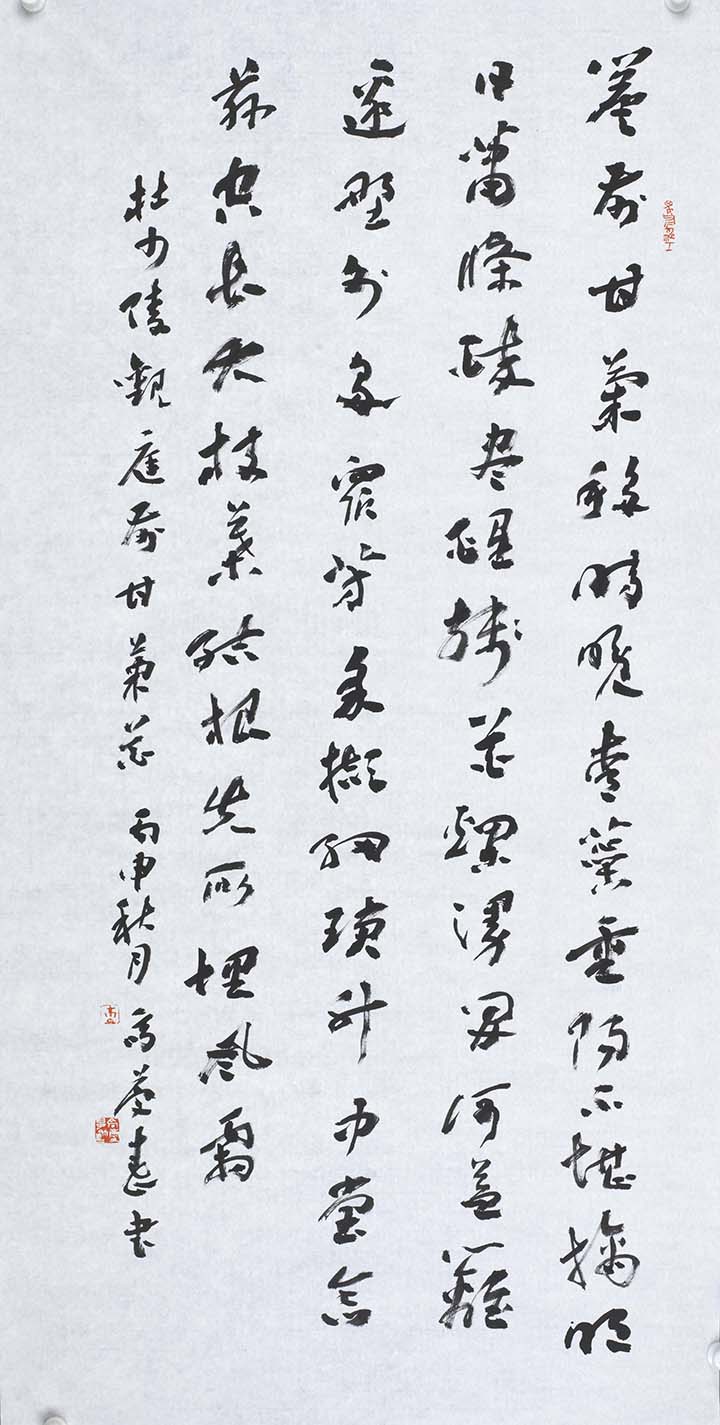 簷前甘菊移時晚青蕊重陽不堪摘明
日蕭條醉尽醒殘花爛漫開何益籬
邊野外多眾芳采擷細瑣升中堂念
茲空長大枝葉結根失所埋風霜
杜少陵觀庭前甘菊花 丙申秋月 高書